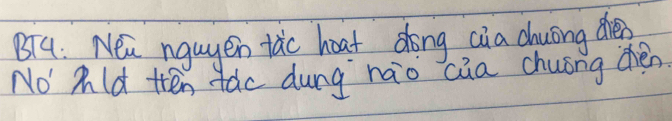 BT4: Nêu nguyên tắc hoạt động của chuông điện
Nó dựa trên tác dụng nào của chuông điện.